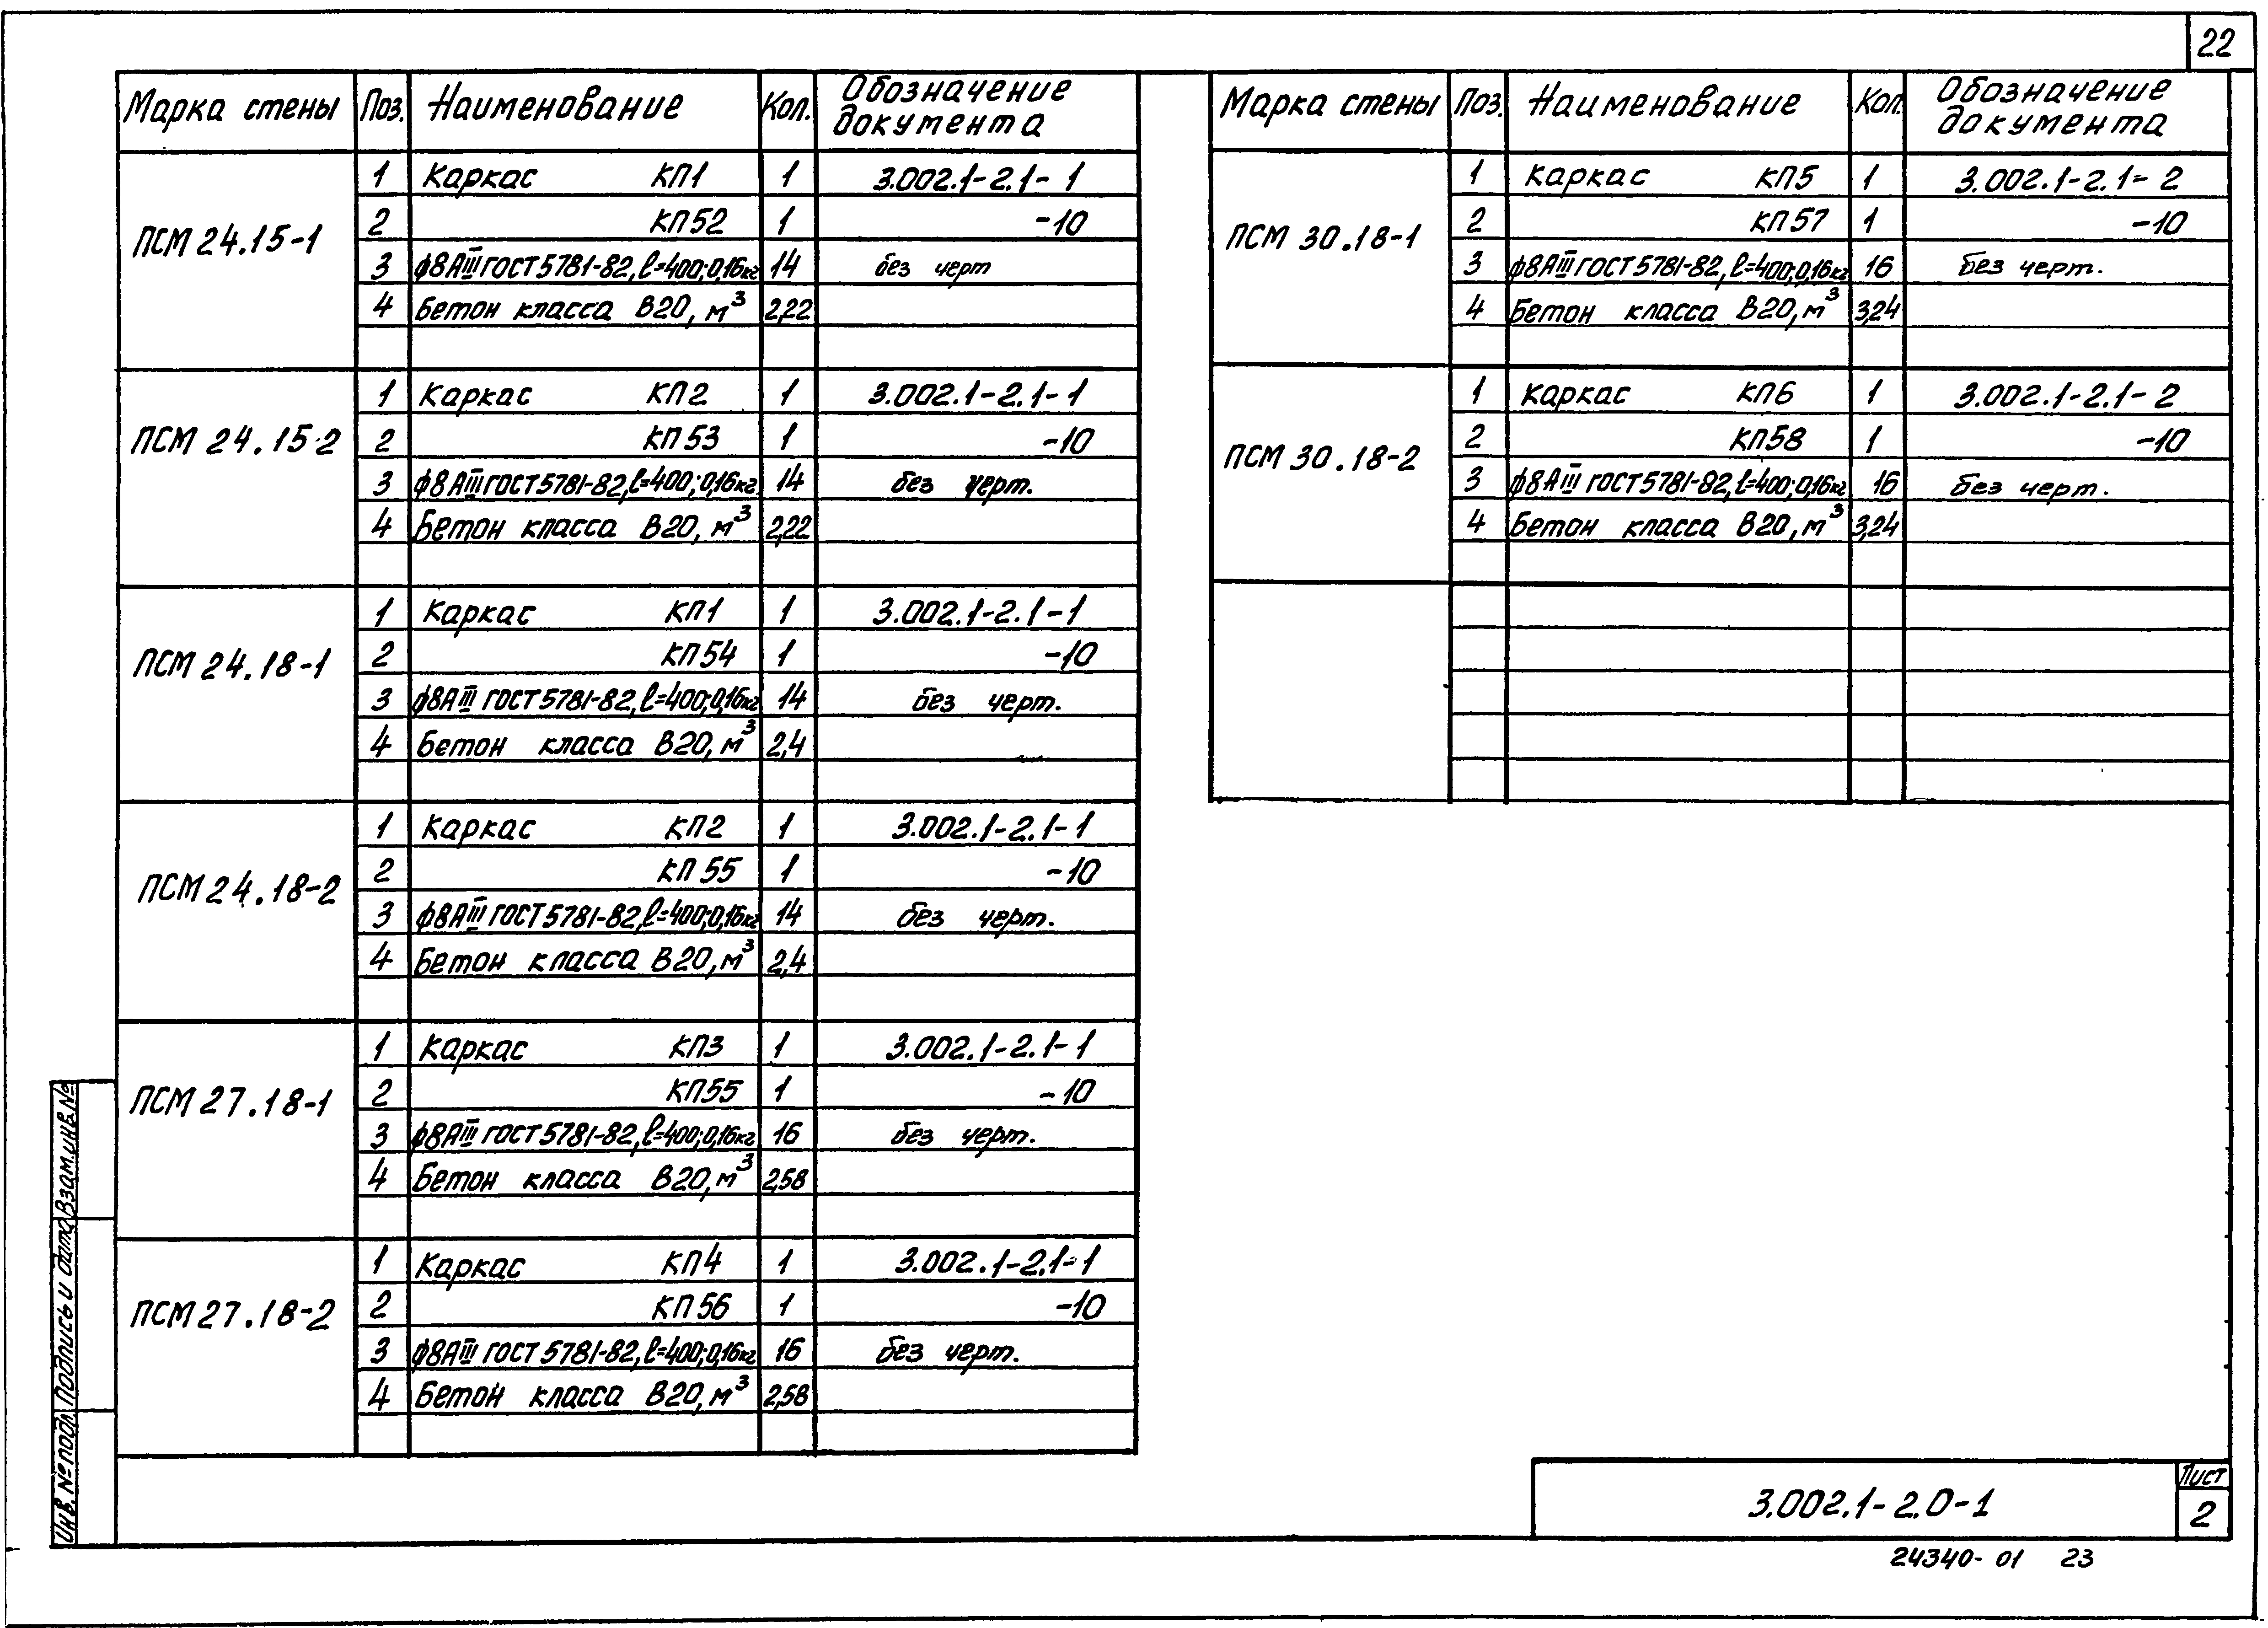 22
Марка стены Поз. Наименование Кол. Обозначение документа
ПСМ 24.15-1
1 Каркас КП1 1 3.002.1-2.1-1
2 КП52 1 -10
3 ф8АIII ГОСТ 5781-82, ℓ=400; 0,16кг 14 без черт
4 Бетон класса В20, м³ 2,22
ПСМ 24.15-2
1 Каркас КП2 1 3.002.1-2.1-1
2 КП53 1 -10
3 ф8АIII ГОСТ 5781-82, ℓ=400; 0,16кг. 14 без черт.
4 Бетон класса В20, м³ 2,22
ПСМ 24.18-1
1 Каркас КП1 1 3.002.1-2.1-1
2 КП54 1 -10
3 ф8АIII ГОСТ 5781-82, ℓ=400; 0,16кг 14 без черт.
4 Бетон класса В20, м³ 2,4
ПСМ 24.18-2
1 Каркас КП2 1 3.002.1-2.1-1
2 КП55 1 -10
3 ф8АIII ГОСТ 5781-82, ℓ=400; 0,16кг 14 без черт.
4 Бетон класса В20, м³ 2,4
ПСМ 27.18-1
1 Каркас КП3 1 3.002.1-2.1-1
2 КП55 1 -10
3 ф8АIII ГОСТ 5781-82, ℓ=400; 0,16кг 16 без черт.
4 Бетон класса В20, м³ 2,58
ПСМ 27.18-2
1 Каркас КП4 1 3.002.1-2.1-1
2 КП56 1 -10
3 ф8АIII ГОСТ 5781-82, ℓ=400; 0,16кг 16 без черт.
4 Бетон класса В20, м³ 2,58
Марка стены Поз. Наименование Кол. Обозначение документа
ПСМ 30.18-1
1 Каркас КП5 1 3.002.1-2.1-2
2 КП57 1 -10
3 ф8АIII ГОСТ 5781-82, ℓ=400; 0,16кг 16 Без черт.
4 Бетон класса В20, м³ 3,24
ПСМ 30.18-2
1 Каркас КП6 1 3.002.1-2.1-2
2 КП58 1 -10
3 ф8АIII ГОСТ 5781-82, ℓ=400; 0,16кг 16 без черт.
4 Бетон класса В20, м³ 3,24
Инв. № подл. Подпись и дата Взам.инв.№
3.002.1-2.0-1
Лист
2
24340-01 23